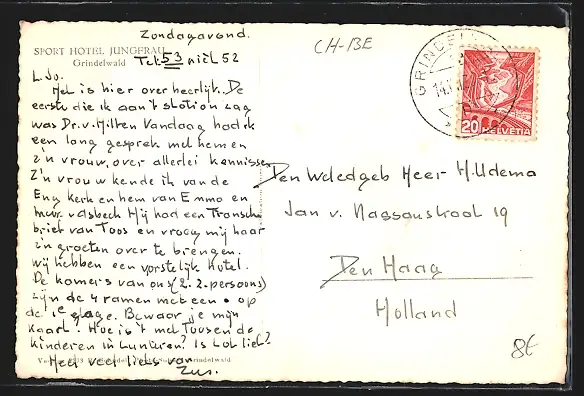 Zondagavond.
SPORT HOTEL JUNGFRAU
Grindelwald
Tel: 53 niet 52
L. Jo.
Het is hier overheerlijk. De
eerste die ik aan 't station zag
was Dr. v. Milten Vandaag had ik
een lang gesprek met hem en
z'n vrouw, over allerlei kennissen
Z'n vrouw kende ik van de
Eng kerk en hem van Emmo en
mevr. Hij had een
brief van Toos en vroeg mij haar
z'n groeten over te brengen.
wij hebben een vorstelijk hotel.
De kamers van ons (2. 2-persoons)
zijn de 4 ramen met een • op
de 1e etage. Bewaar je mijn
kaart? Hoe is 't met Toos en de
kinderen in Lunteren? Is Lot lief?
Heel veel liefs van
Zus.
CH-BE
GRINDELWALD
20 HELVETIA
Den Weledgeb Heer H. Udema
Jan v. Nassaustraat 19
Den Haag
Holland
8€